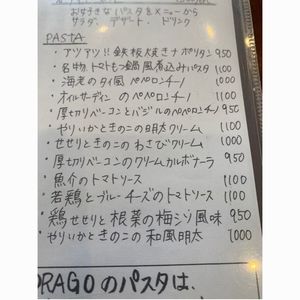 お好きなパスタをメニューから
サラダ、デザート、ドリンク
PASTA
・アツアツ!! 鉄板焼きナポリタン 950
・名物、トマトもつ鍋風煮込みパスタ 1100
・海老のタイ風ペペロンチーノ 1000
・オイルサーディンのペペロンチーノ 1000
・厚切りベーコンとバジルのペペロンチーノ 950
・やりいかときのこの明太クリーム 1100
・せせりときのこのわさびクリーム 1000
・厚切りベーコンのクリームカルボナーラ 950
・魚介のトマトソース 1100
・若鶏とブルーチーズのトマトソース 1100
・鶏せせりと根菜の梅ジソ風味 950
・やりいかときのこの和風明太 1000
DRAGOのパスタは、